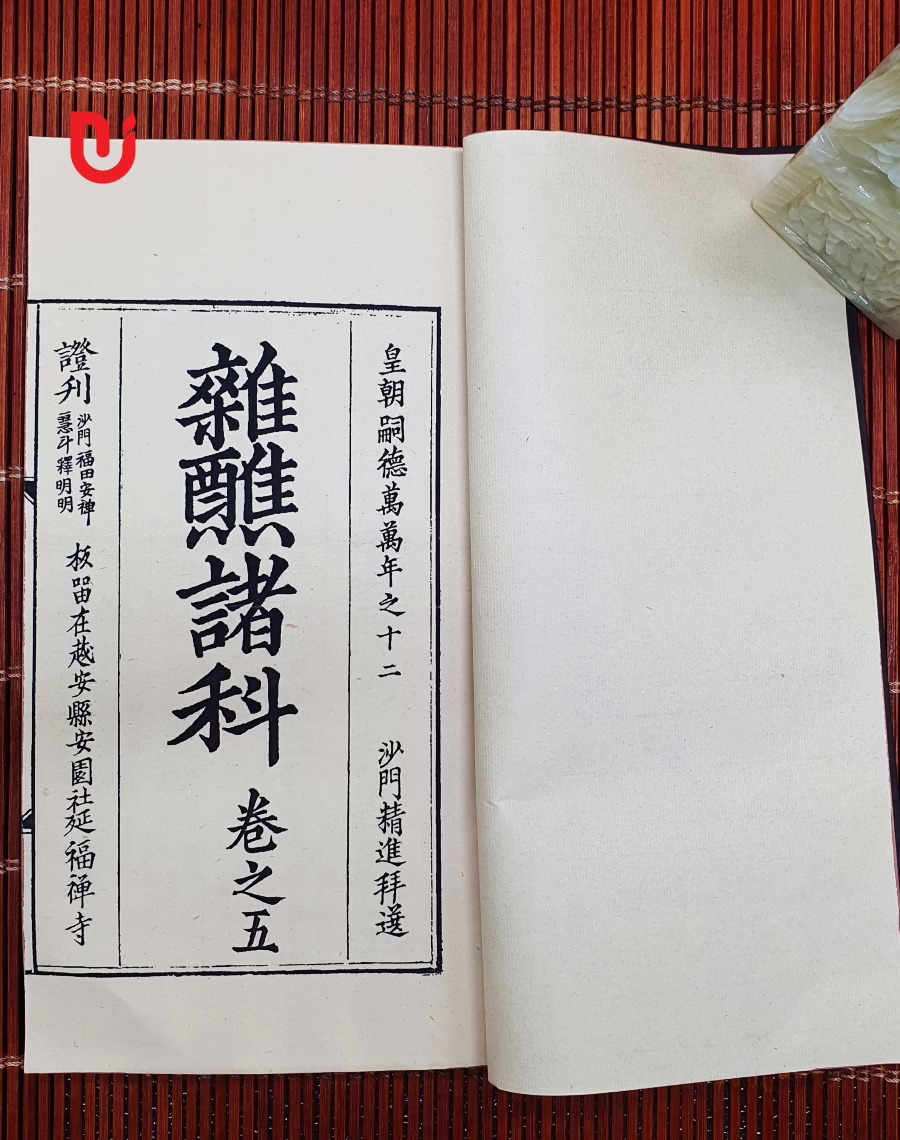 皇朝嗣德萬萬年之十二 沙門精進拜選
雜醮諸科 卷之五
證刋 沙門福田安禅
慧斗釋明明
板畱在越安縣安園社延福禅寺